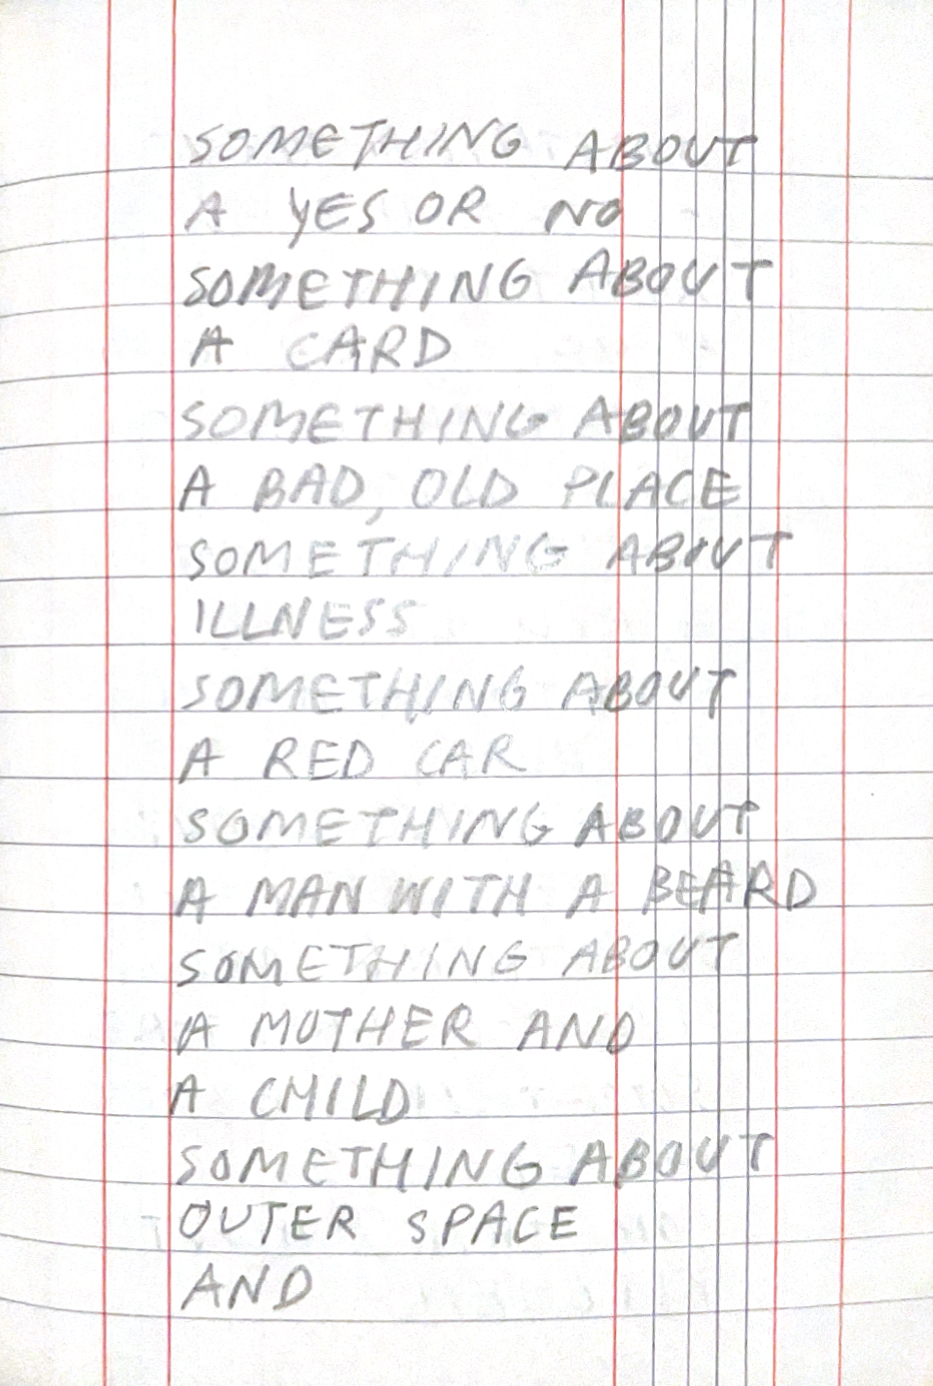 SOMETHING ABOUT
A YES OR NO
SOMETHING ABOUT
A CARD
SOMETHING ABOUT
A BAD, OLD PLACE
SOMETHING ABOUT
ILLNESS
SOMETHING ABOUT
A RED CAR
SOMETHING ABOUT
A MAN WITH A BEARD
SOMETHING ABOUT
A MOTHER AND
A CHILD
SOMETHING ABOUT
OUTER SPACE
AND